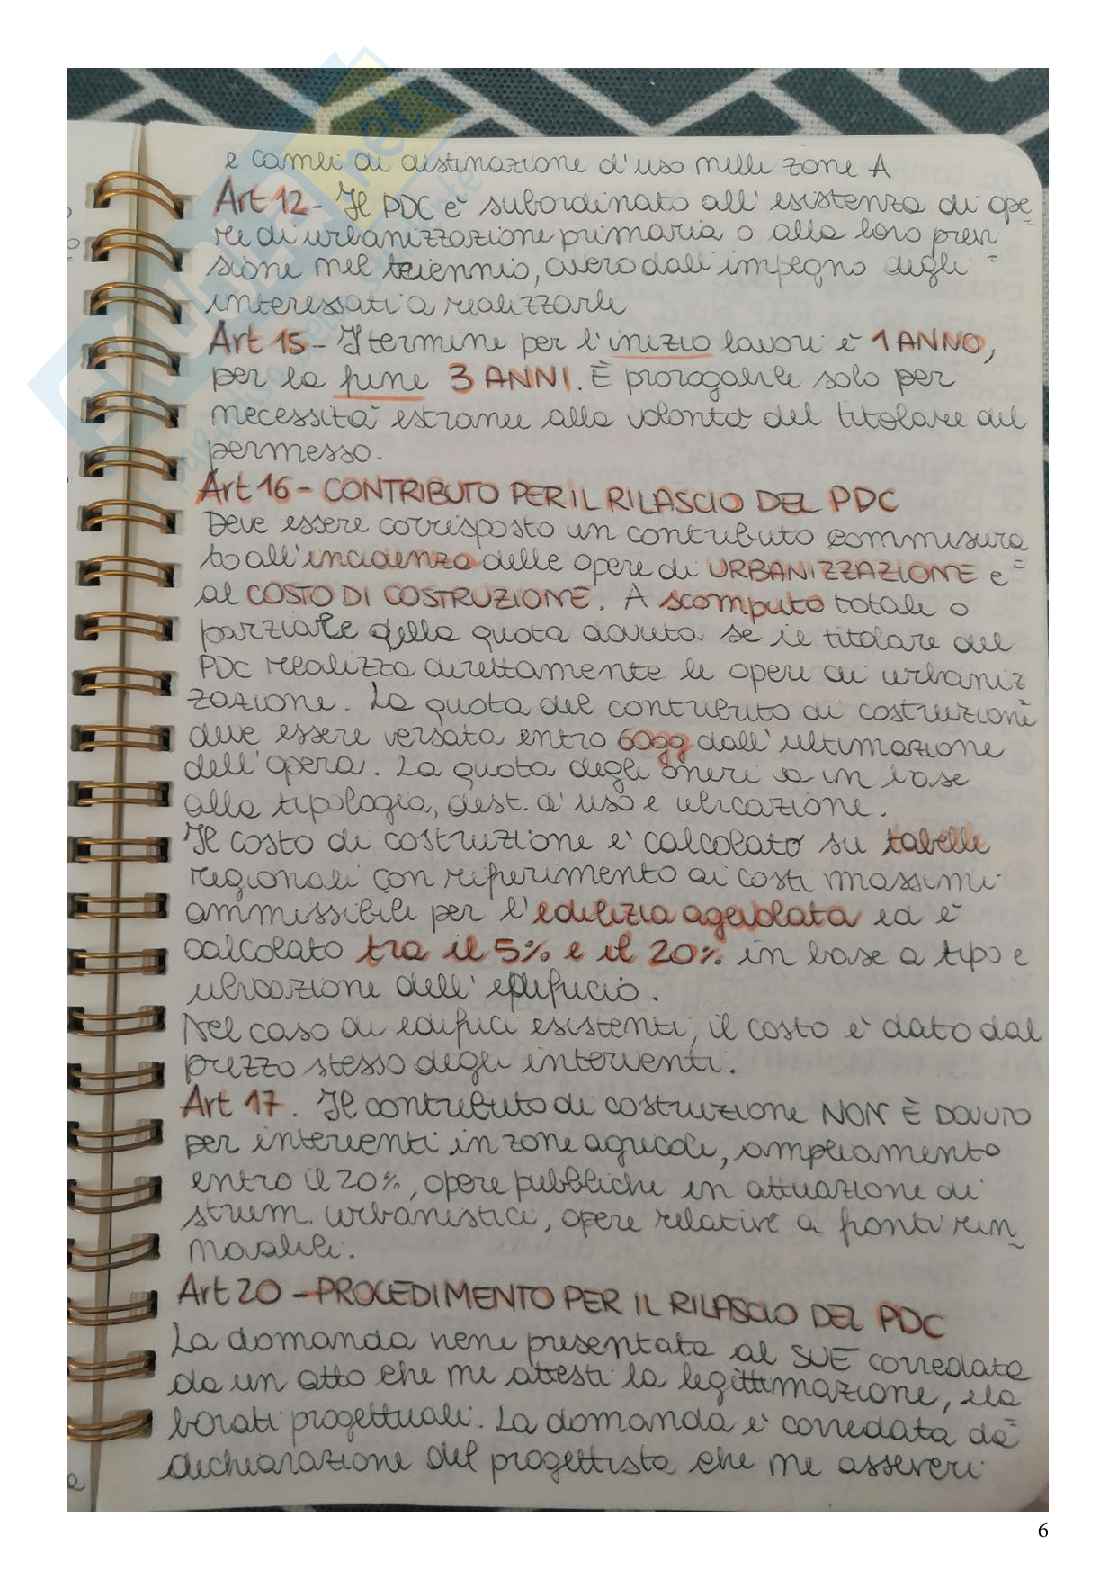 e cambi di destinazione d'uso nelle zone A
Art 12 - Il PDC è subordinato all'esistenza di ope
re di urbanizzazione primaria o alla loro previ
sione nel triennio, ovvero dall'impegno degli
interessati a realizzarle
Art 15 - Il termine per l'inizio lavori è 1 ANNO,
per la fine 3 ANNI. È prorogabile solo per
necessità estranee alla volontà del titolare del
permesso.
Art 16 - CONTRIBUTO PER IL RILASCIO DEL PDC
Deve essere corrisposto un contributo commisura
to all'incidenza delle opere di URBANIZZAZIONE e
al COSTO DI COSTRUZIONE. A scomputo totale o
parziale della quota dovuta se il titolare del
PDC realizza direttamente le opere di urbaniz
zazione. La quota del contributo di costruzione
deve essere versata entro 60gg dall'ultimazione
dell'opera. La quota degli oneri va in base
alla tipologia, dest. d'uso e ubicazione.
Il costo di costruzione è calcolato su tabelle
regionali con riferimento ai costi massimi
ammissibili per l'edilizia agevolata ed è
calcolato tra il 5% e il 20% in base a tipo e
ubicazione dell'edificio.
Nel caso di edifici esistenti, il costo è dato dal
prezzo stesso degli interventi.
Art 17. Il contributo di costruzione NON È DOVUTO
per interventi in zone agricole, ampliamento
entro il 20%, opere pubbliche in attuazione di
strum. urbanistici, opere relative a fonti rin
novabili.
Art 20 - PROCEDIMENTO PER IL RILASCIO DEL PDC
La domanda viene presentata al SUE corredata
da un atto che ne attesti la legittimazione, ela
borati progettuali. La domanda è corredata da
dichiarazione del progettista che ne asseveri
6